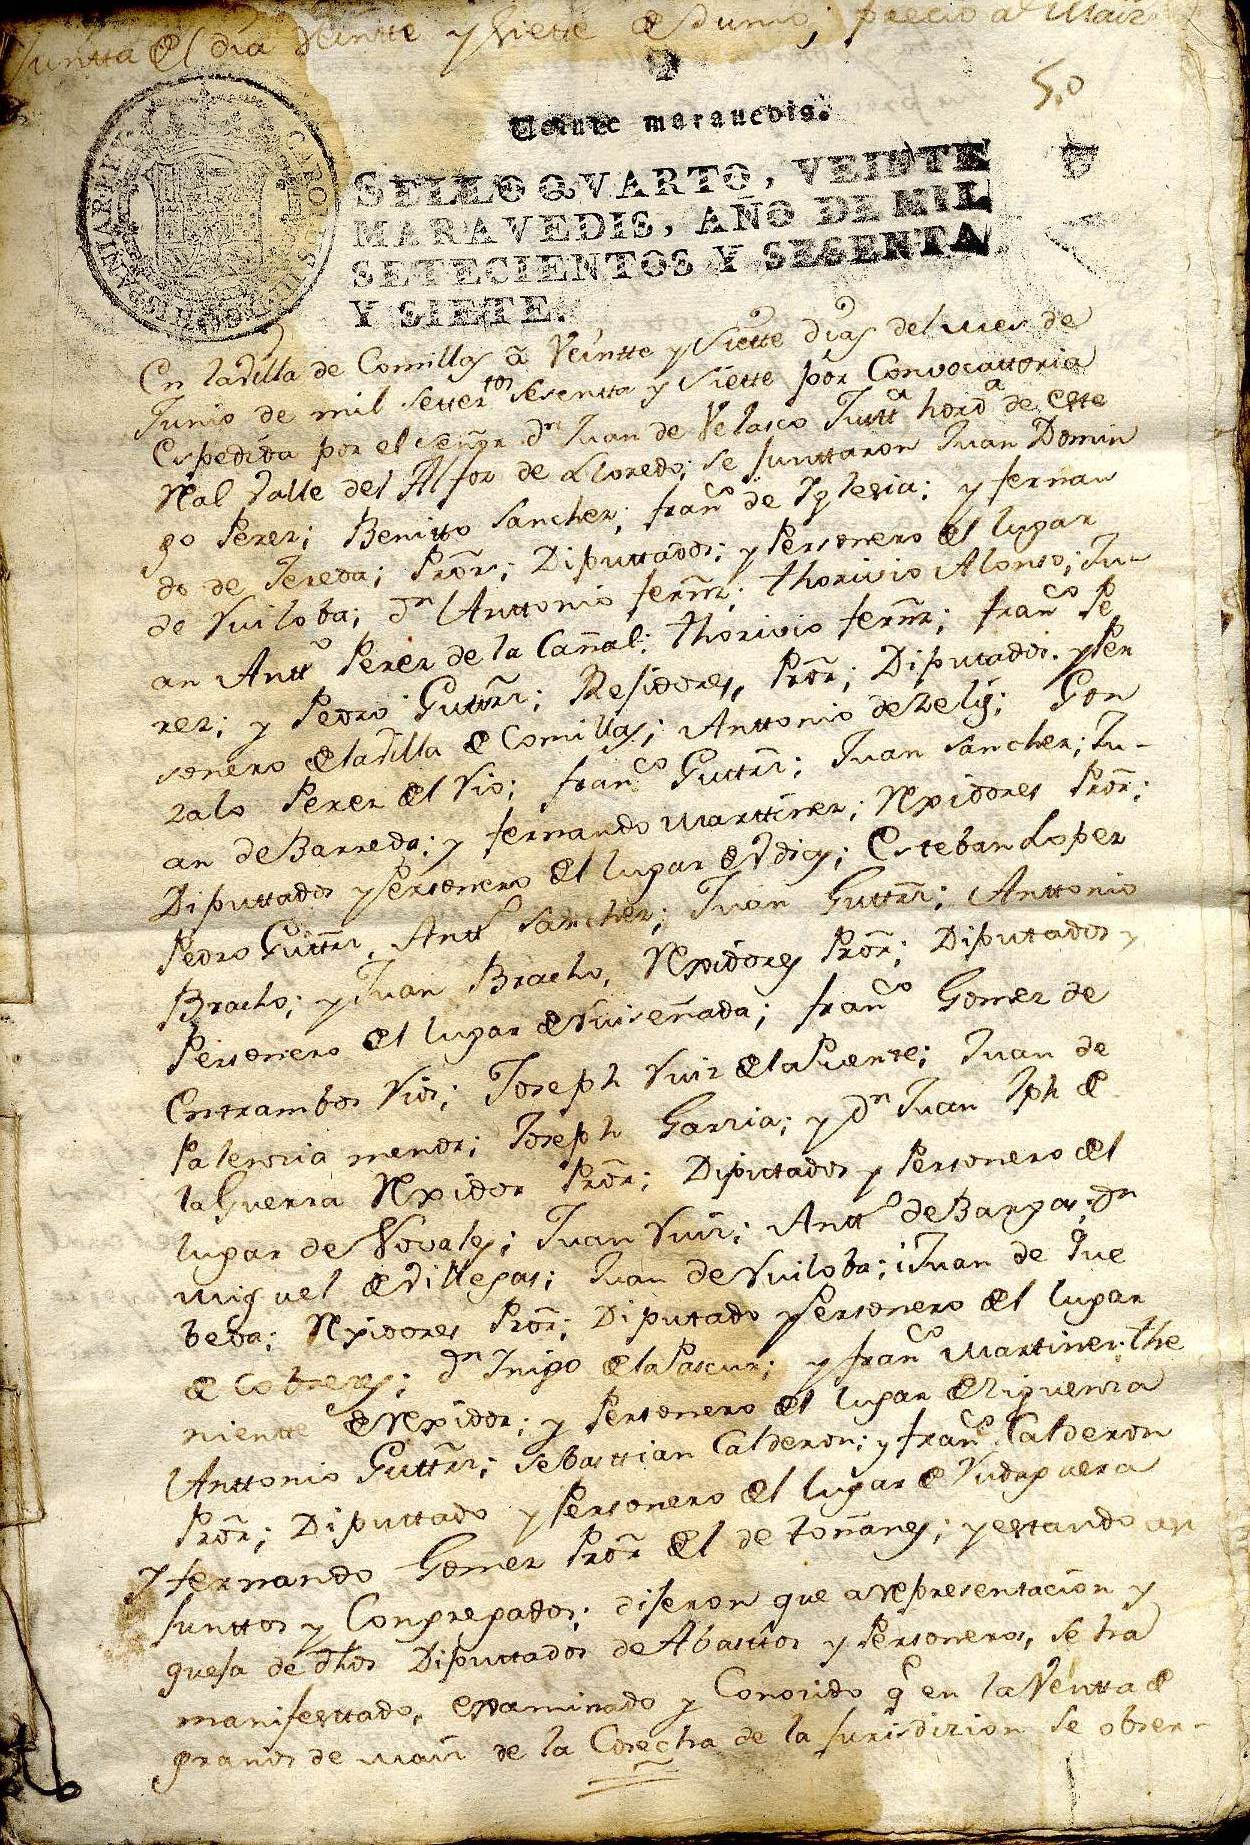 Juntta el dia Veintte y Siette de Junio; precio al Maiz
5.0
Veinte marauedis.
SELLO QVARTO, VEINTE
MARAVEDIS, AÑO DE MIL
SETECIENTOS Y SESENTA
Y SIETE.
En la Villa de Comillas â Veintte y Siette dias del mes de
Junio de mil settez.tos sesentta y Siette por Convocattoria
Espedida por el señor dn Juan de Velasco Justta hordª de este
Rl Valle del Alfoz de Lloredo; se Junttaron Juan Domin
go Perez; Benitto Sanchez; franco de Yglesia; y fernan
do de Tereda; Pror; Diputtados; y Personero el lugar
de Ruiloba; dn Anttonio fernz; thorivio Alonso; Ju-
an Antto Perez de la Cañal; thorivio fernz; franco Pe
rez; y Pedro Guttrz; Residores, Pror; Diputados. y Per
sonero de la Villa de Comillas; Anttonio de Zelis; Gon
zalo Perez el Rio; franco Guttrz; Juan Sanchez; Ju-
an de Barreda; y fernando Marttinez; Rexidores Pror;
Diputtados y Personero el lugar de Vdias; Esteban Lopez
Pedro Guttrz, Antto Sanchez; Juan Guttrz; Anttonio
Bracho; y Juan Bracho, Rexidores Pror; Diputados y
Personero el lugar de Ruiseñada; franco Gomez de
Entrambos Rios; Joseph Ruiz de la Puente; Juan de
Palenzia menor; Joseph Garzia; y dn Juan Jph de
la Guerra Rexidor Pror; Diputtados y Personero el
lugar de Novales; Juan Ruiz; Antto de Bargas; dn
Miguel de Villegas; Juan de Ruiloba; Juan de Que
beda; Rexidores Pror; Diputado y Personero el lugar
de Cobreces; dn Inigo de la Pascua; y franco Martinez; the
niente de Rexidor; y Personero el lugar de Ziguenza
Anttonio Guttrz; Sebasttian Calderon; y franco Calderon
Pror; Diputtado y Personero el lugar de Rudaguera
y fernando Gomez Pror el de toñanes; y estando asi
Junttos y Congregados; dijeron que a representacion y
queja de dhos Diputtados de Abasttos y Personeros, se ha
manifesttado, examinado y Conozido q en la Ventta de
granos de maiz de la Cosecha de la Jurisdizion se obser-